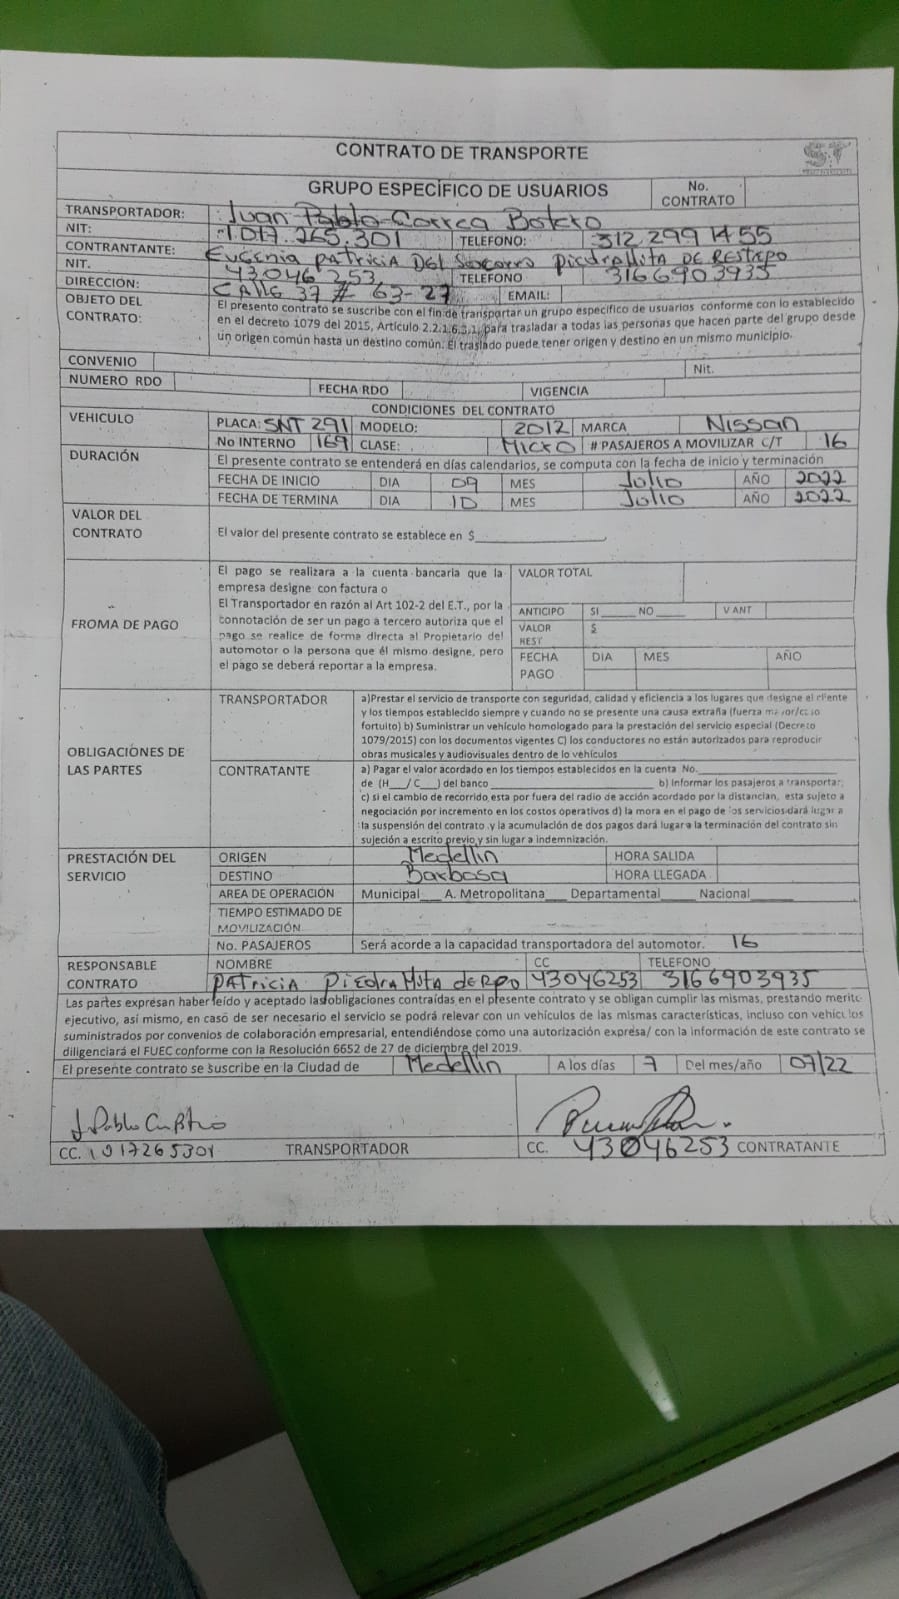 CONTRATO DE TRANSPORTE
GRUPO ESPECÍFICO DE USUARIOS No. CONTRATO
TRANSPORTADOR: Juan Pablo Correa Botero
NIT: 1.017.265.301 TELEFONO: 312 299 1455
CONTRANTANTE: Eugenia Patricia Del Socorro Piedrahita DE Restrepo
NIT. 43046 253 TELEFONO 3166903935
DIRECCIÓN: Calle 37 # 63-27 EMAIL:
OBJETO DEL CONTRATO: El presento contrato se suscribe con el fin de transportar un grupo especifico de usuarios conforme con lo establecido
en el decreto 1079 del 2015, Artículo 2.2.1.6.3.1, para trasladar a todas las personas que hacen parte del grupo desde
un origen común hasta un destino común. El traslado puede tener origen y destino en un mismo municipio.
CONVENIO Nit.
NUMERO RDO FECHA RDO VIGENCIA
CONDICIONES DEL CONTRATO
VEHICULO PLACA: SNT 291 MODELO: 2012 MARCA Nissan
No INTERNO 169 CLASE: Micro # PASAJEROS A MOVILIZAR C/T 16
DURACIÓN El presente contrato se entenderá en días calendarios, se computa con la fecha de inicio y terminación
FECHA DE INICIO DIA 09 MES Julio AÑO 2022
FECHA DE TERMINA DIA 10 MES Julio AÑO 2022
VALOR DEL CONTRATO El valor del presente contrato se establece en $
FROMA DE PAGO
El pago se realizara a la cuenta bancaria que la
empresa designe con factura o
El Transportador en razón al Art 102-2 del E.T., por la
connotación de ser un pago a tercero autoriza que el
pago se realice de forma directa al Propietario del
automotor o la persona que él mismo designe, pero
el pago se deberá reportar a la empresa.
VALOR TOTAL
ANTICIPO SI NO V ANT
VALOR REST $
FECHA PAGO DIA MES AÑO
OBLIGACIONES DE LAS PARTES
TRANSPORTADOR a)Prestar el servicio de transporte con seguridad, calidad y eficiencia a los lugares que designe el cliente
y los tiempos establecido siempre y cuando no se presente una causa extraña (fuerza mayor/caso
fortuito) b) Suministrar un vehículo homologado para la prestación del servicio especial (Decreto
1079/2015) con los documentos vigentes C) los conductores no están autorizados para reproducir
obras musicales y audiovisuales dentro de lo vehículos
CONTRATANTE a) Pagar el valor acordado en los tiempos establecidos en la cuenta No.
de (H___/ C___) del banco b) Informar los pasajeros a transportar;
c) si el cambio de recorrido esta por fuera del radio de acción acordado por la distancian, esta sujeto a
negociación por incremento en los costos operativos d) la mora en el pago de los servicios dará lugar a
la suspensión del contrato y la acumulación de dos pagos dará lugar a la terminación del contrato sin
sujeción a escrito previo y sin lugar a indemnización.
PRESTACIÓN DEL SERVICIO
ORIGEN Medellin HORA SALIDA
DESTINO Barbosa HORA LLEGADA
AREA DE OPERACIÓN Municipal___ A. Metropolitana___ Departamental____ Nacional______
TIEMPO ESTIMADO DE MOVILIZACIÓN
No. PASAJEROS Será acorde a la capacidad transportadora del automotor. 16
RESPONSABLE CONTRATO NOMBRE CC TELEFONO
Patricia Piedrahita de RPO 43046253 3166903935
Las partes expresan haber leído y aceptado las obligaciones contraídas en el presente contrato y se obligan cumplir las mismas, prestando merito
ejecutivo, así mismo, en casó de ser necesario el servicio se podrá relevar con un vehículos de las mismas características, incluso con vehículos
suministrados por convenios de colaboración empresarial, entendiéndose como una autorización expresa/ con la información de este contrato se
diligenciará el FUEC conforme con la Resolución 6652 de 27 de diciembre del 2019.
El presente contrato se suscribe en la Ciudad de Medellin A los días 7 Del mes/año 07/22
CC. 1017265301 TRANSPORTADOR CC. 43046253 CONTRATANTE